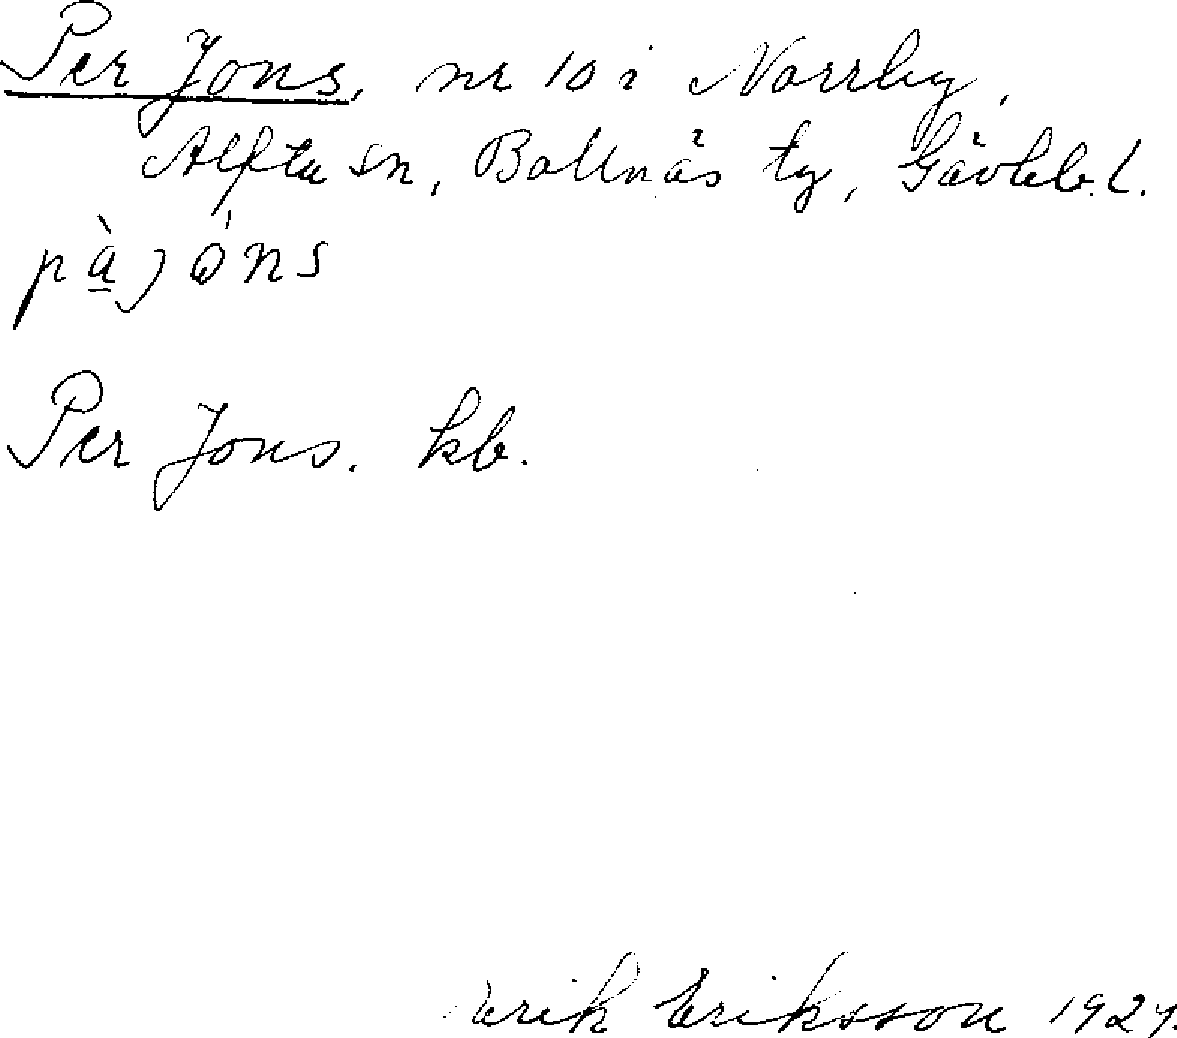 Per Jons, nr 10 i Norrby,
Alfta sn, Bollnäs tg, Gävleb. l.
pàjóns
Per Jons. kb.
Erik Eriksson 1927.